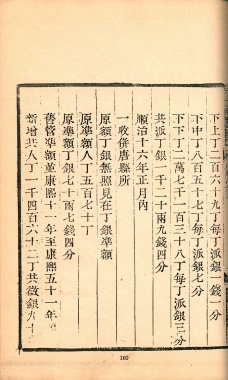 下上丁二百六十九丁每丁派銀一錢一分
下中丁八百五十七丁每丁派銀七分
下下丁二萬七千一百三十八丁每丁派銀三分
共派丁銀一千二十兩九錢四分
順治十六年正月內
一收併唐縣所
原額丁銀無照見在丁銀準額
原準額人丁五百七十丁
原準額丁銀七十兩七錢四分
舊管準額並康熙十一年至康熙五十一年
新增共人丁一千四百六十二丁共徵銀九十
160